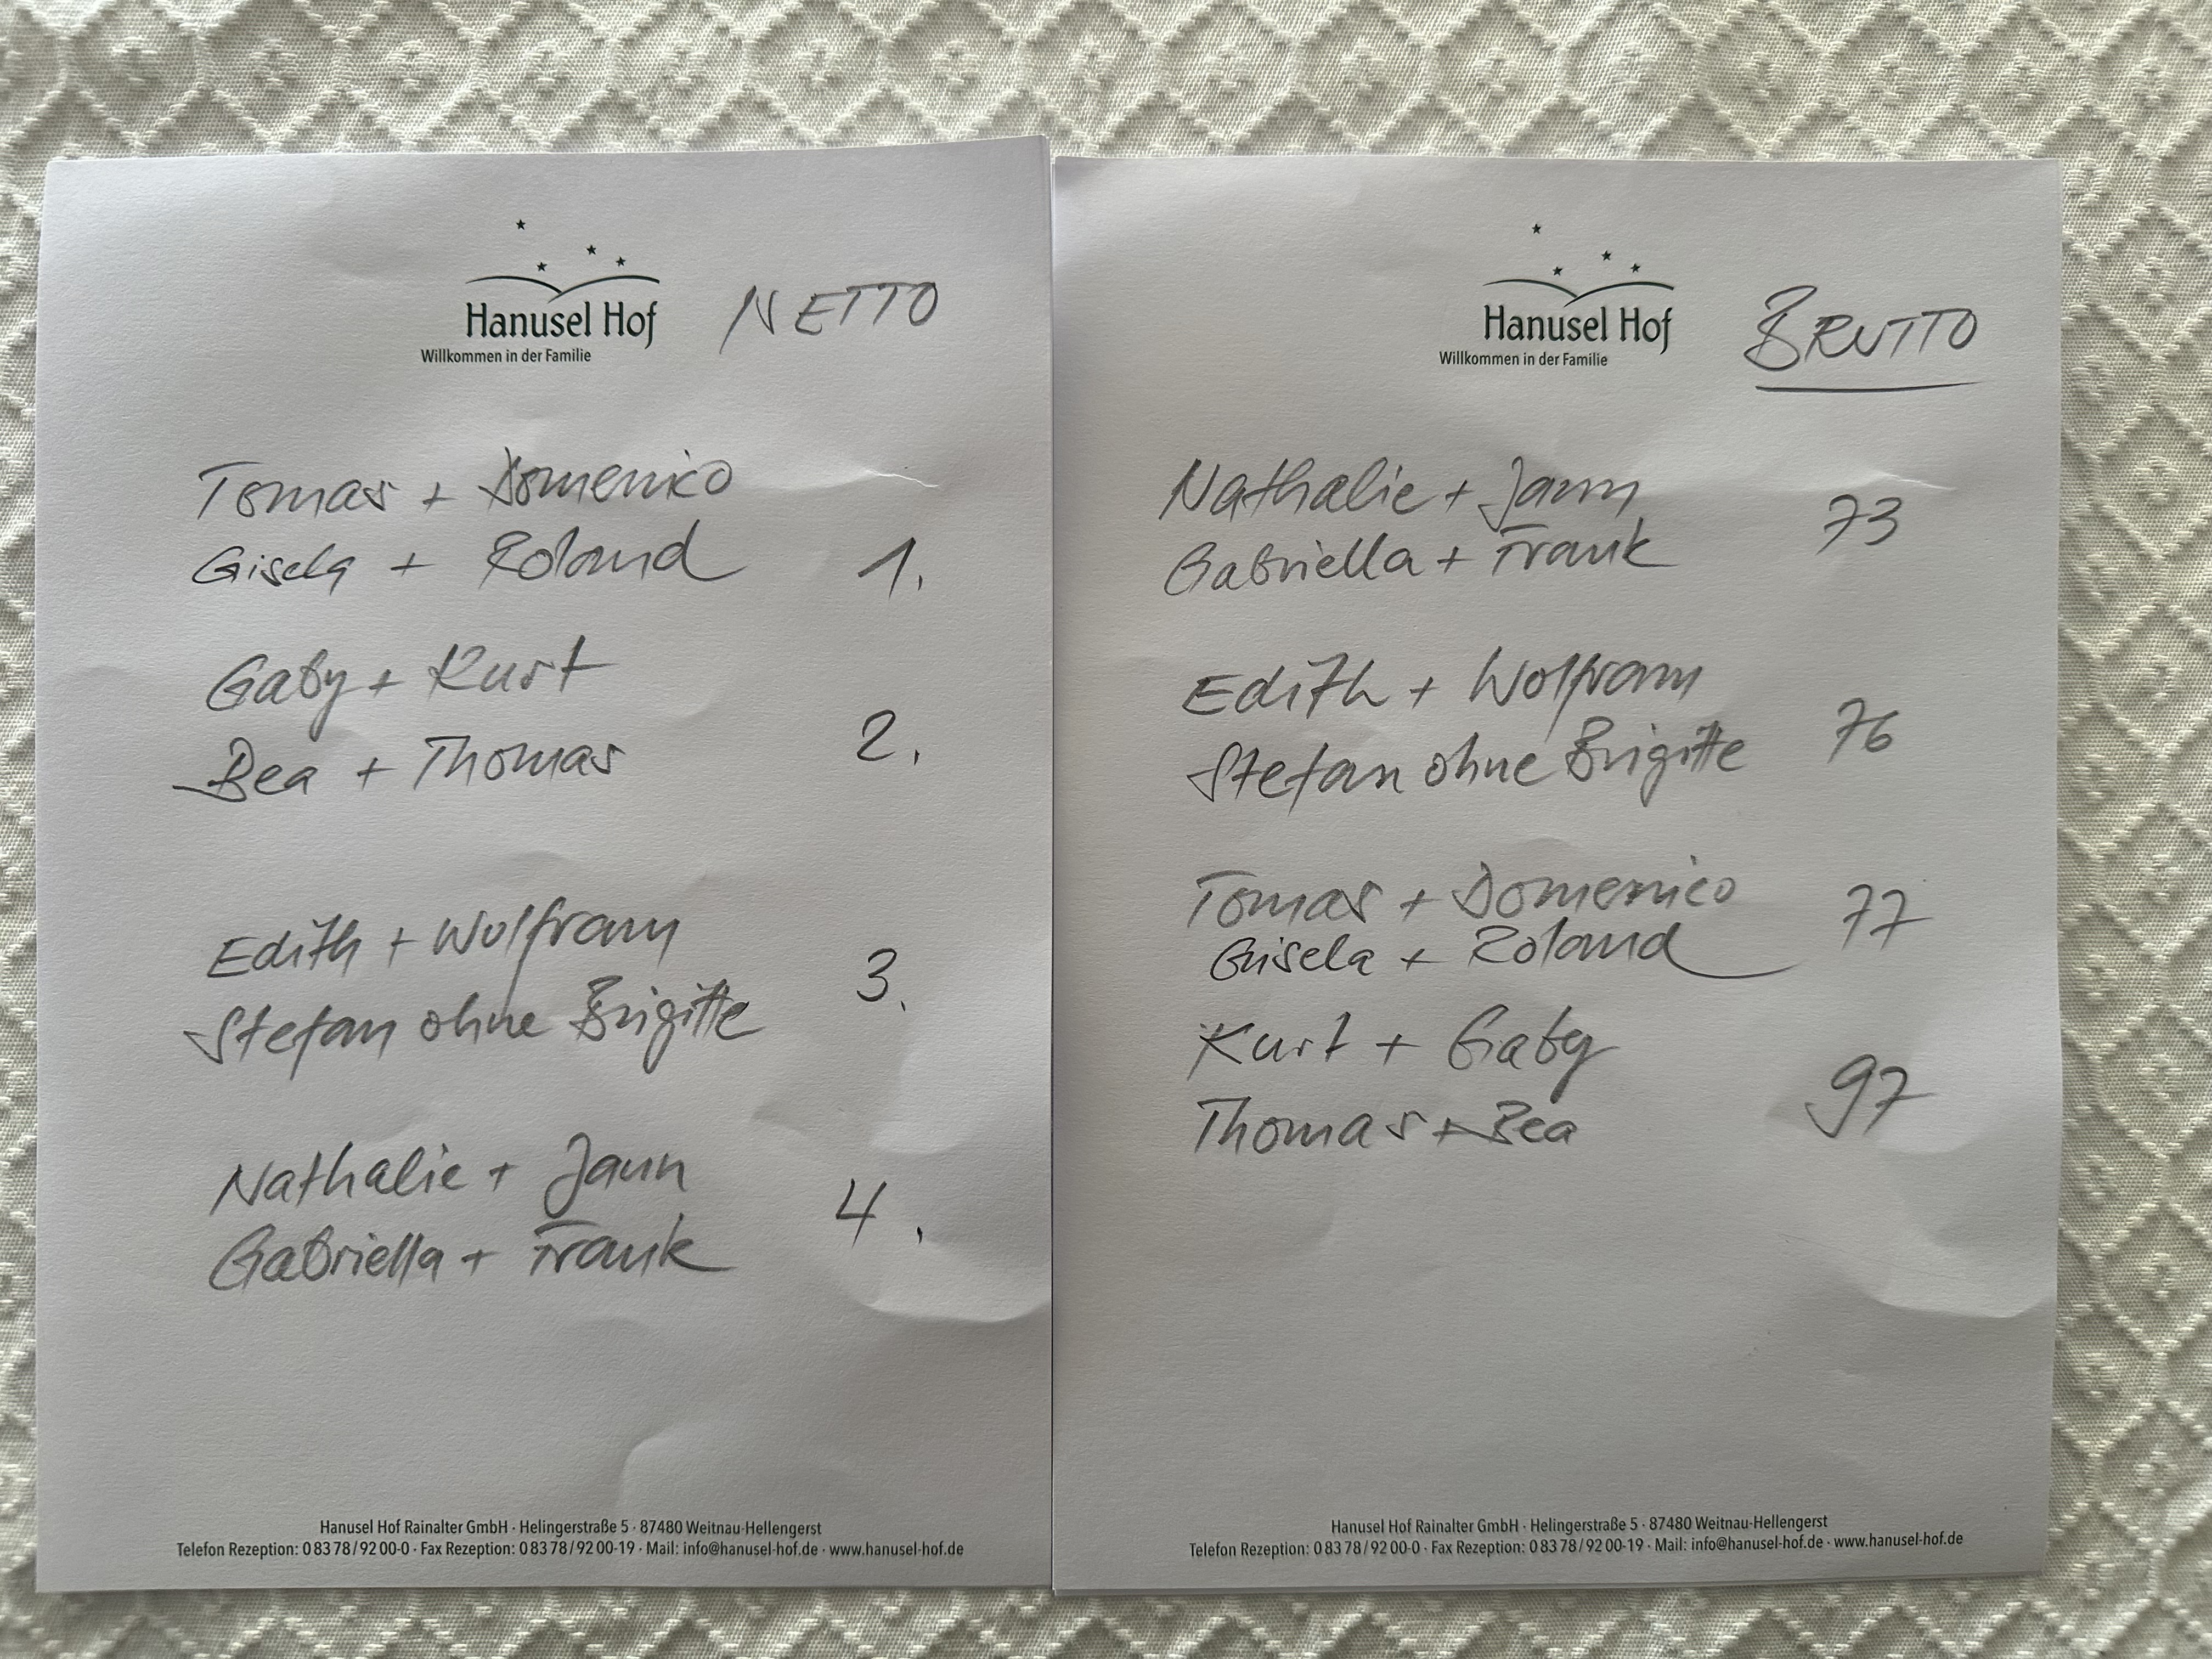 Hanusel Hof
Willkommen in der Familie
NETTO
Tomas + Domenico
Gisela + Roland
1.
Gaby + Kurt
Bea + Thomas
2.
Edith + Wolfram
Stefan ohne Brigitte
3.
Nathalie + Jann
Gabriella + Frank
4.
Hanusel Hof Rainalter GmbH · Helingerstraße 5 · 87480 Weitnau-Hellengerst
Telefon Rezeption: 0 83 78 / 92 00-0 · Fax Rezeption: 0 83 78 / 92 00-19 · Mail: info@hanusel-hof.de · www.hanusel-hof.de
Hanusel Hof
Willkommen in der Familie
BRUTTO
Nathalie + Jann
Gabriella + Frank
73
Edith + Wolfram
Stefan ohne Brigitte
76
Tomas + Domenico
Gisela + Roland
77
Kurt + Gaby
Thomas + Bea
97
Hanusel Hof Rainalter GmbH · Helingerstraße 5 · 87480 Weitnau-Hellengerst
Telefon Rezeption: 0 83 78 / 92 00-0 · Fax Rezeption: 0 83 78 / 92 00-19 · Mail: info@hanusel-hof.de · www.hanusel-hof.de